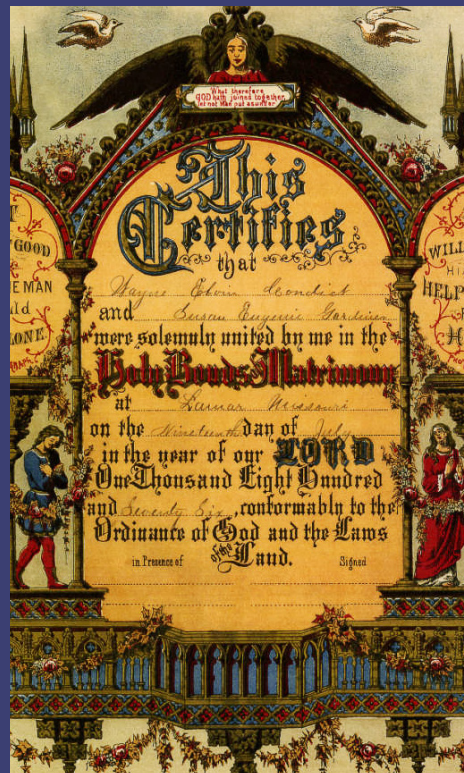 What therefore
GOD hath joined together,
let not Man put asunder
This
Certifies
that
Wayne Edwin Condict
and Susan Eugenie Gardiner
were solemnly united by me in the
Holy Bonds of Matrimony
at Lamar Missouri
on the Nineteenth day of July
in the year of our LORD
One Thousand Eight Hundred
and Seventy Six, conformably to the
Ordinance of God and the Laws
of the Land.
in Presence of Signed
GOOD
E MAN
ld
LONE
WILL
HI
HELP
H